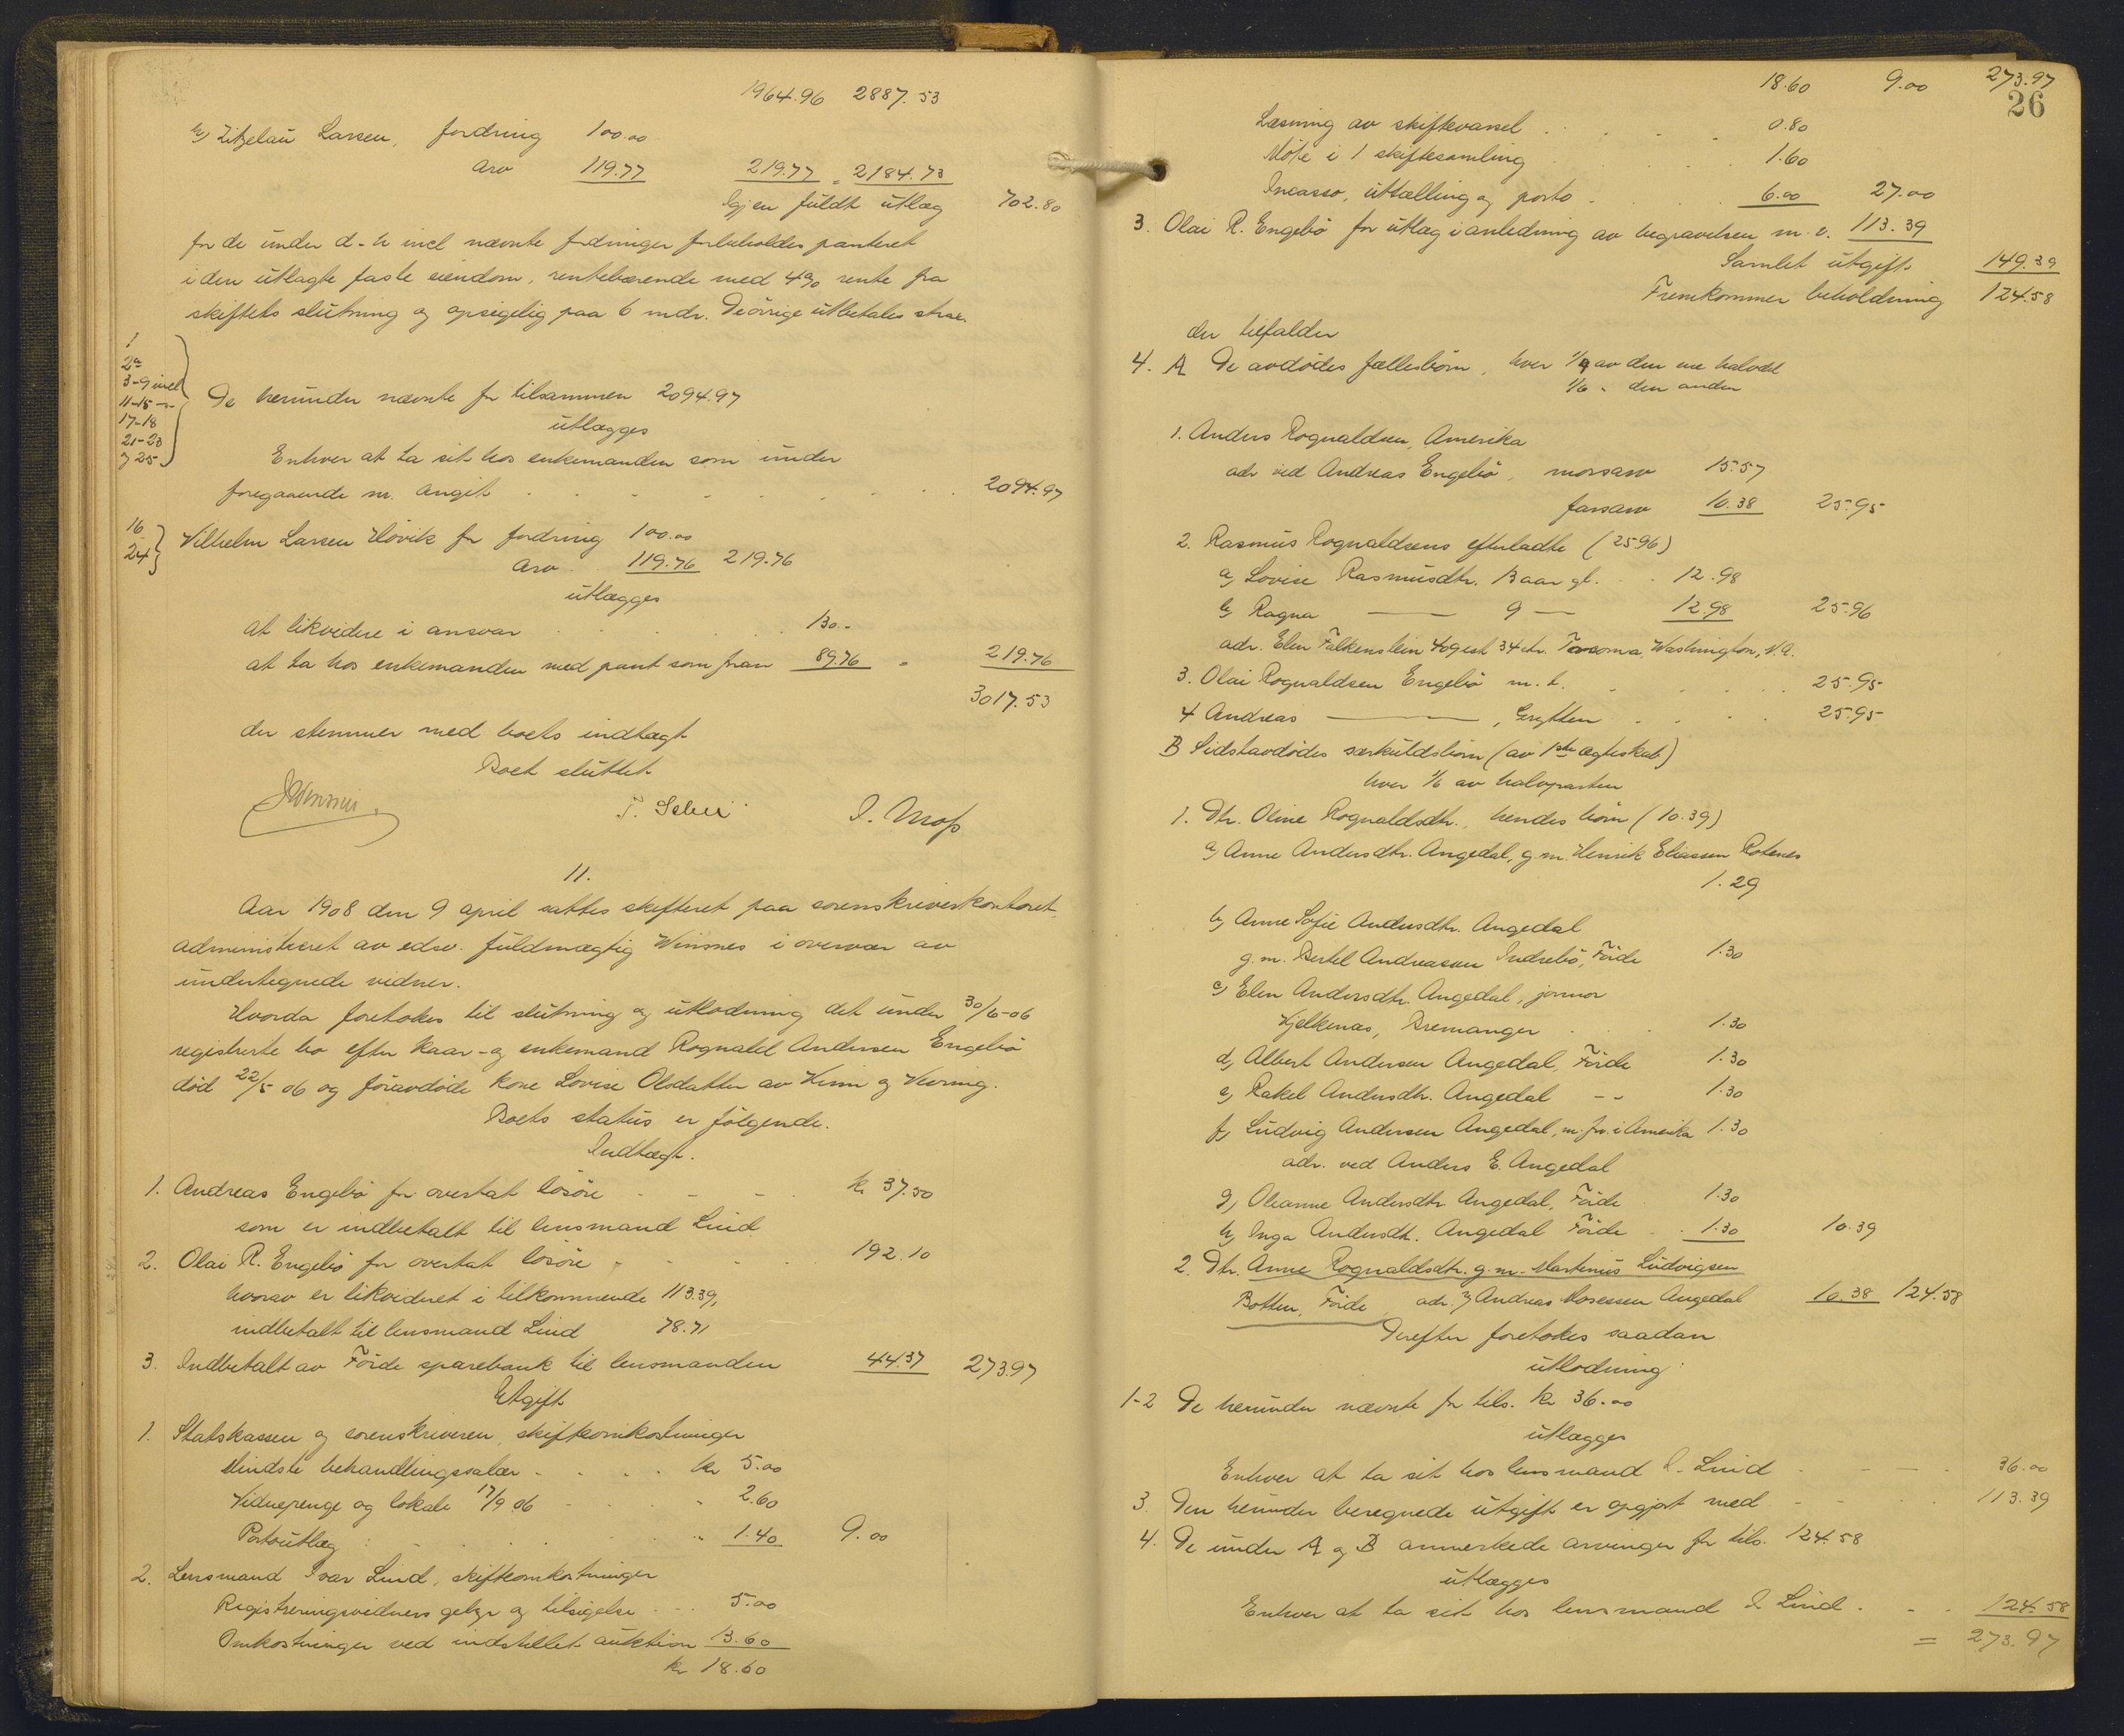 1964.96 2887.53
h, Zitzelau Larsen, fordring 100.00
arv 119.77 219.77 = 2184.73
Igjen fuldt utlæg 702.80
for de under d-h incl nævnte fordringer forbeholdes panteret
i den utlagte faste eiendom, rentebærende med 4% rente fra
skiftets slutning og opsigelig paa 6 mdr. De övrige utbetales strax.
1
2a
3-9 incl
11-15 -"-
17-18
21-23
og 25
De herunder nævnte for tilsammen 2094.97
utlægges
Enhver at ta sit hos enkemanden som under
foregaaende nr. angit 2094.97
16
24
Vilhelm Larsen Hövik for fordring 100.00
arv 119.76 219.76
utlægges
at likvidere i ansvar 130.-
at ta hos enkemanden med pant som foran 89.76 = 219.76
3017.53
der stemmer med boets indtægt
Boet sluttet
I. Moss
11.
Aar 1908 den 9 april sattes skifteret paa sorenskriverkontoret
administreret av edsv. fuldmægtig Winsnes i overvær av
undertegnede vidner.
Hvorda foretokes til slutning og utlodning det under 30/6-06
registrerte bo efter kaar- og enkemand Rognald Andersen Engebö
död 22/5 06 og föravdöde kone Lovise Olsdatter av Kinn og Vevring.
Boets status er fölgende.
Indtægt.
1. Andreas Engebö for overtat lösöre kr 37.50
som er indbetalt til lensmand Lind
2. Olai R. Engebö for overtat lösöre 192.10
hvorav er likvideret i tilkommende 113.39,
indbetalt til lensmand Lind 78.71
3. Indbetalt av Förde sparebank til lensmanden 44.37 273.97
Utgift
1. Statskassen og sorenskriveren, skifteomkostninger
Mindste behandlingssalær kr 5.00
Vidnepenge og lokale 17/9 06 " 2.60
Portoutlæg " 1.40 9.00
2. Lensmand Ivar Lind, skifteomkostninger
Registreringsvidners gebyr og tilsigelse 5.00
Omkostninger ved indstillet auktion 13.60
kr 18.60
18.60 9.00 273.97
26
Læsning av skiftevarsel 0.80
Möte i 1 skiftesamling 1.60
Incasso, uttælling og porto 6.00 27.00
3. Olai R. Engebö for utlæg i anledning av begravelsen m.v. 113.39
Samlet utgift 149.39
Fremkommer beholdning 124.58
der tilfalder
4. A De avdödes fællesbörn, hver 1/4 av den ene halvdel
1/6 " den anden
1. Anders Rognaldsen, Amerika
adr ved Andreas Engebö, morsarv 15.57
farsarv 10.38 25.95
2. Rasmus Rognaldsens efterladte (25.96)
a, Lovise Rasmusdtr. 13 aar gl. 12.98
b, Ragna — 9 — 12.98 25.96
adr. Elen Falkenstein 409 est 34 str. Tacoma, Washington, N.A.
3. Olai Rognaldsen Engebö m.b. 25.95
4 Andreas —, Grytten 25.95
B Sidstavdödes særkuldsbörn (av 1ste ægteskab)
hver 1/6 av halvparten
1. Dtr. Oline Rognaldsdtr., hendes börn (10.39)
a, Anne Andersdtr. Angedal, g.m. Henrik Eliassen Rotenes
1.29
b, Anne Sofie Andersdtr. Angedal
g.m. Bertel Andreassen Indrebö, Förde 1.30
c, Elen Andersdtr. Angedal, jormor
Kjelkenæs, Bremanger 1.30
d, Albert Andersen Angedal, Förde 1.30
e, Rakel Andersdtr. Angedal -- 1.30
f, Ludvig Andersen Angedal, m. fv. i Amerika 1.30
adr. ved Anders E. Angedal
g, Oleanne Andersdtr Angedal, Förde 1.30
h, Inga Andersdtr. Angedal Förde 1.30 10.39
2. Dtr. Anne Rognaldsdtr. g.m. Martinus Ludvigsen
Botten, Förde, adr. Andreas Mosessen Angedal 10.38 124.58
Derefter foretokes saadan
utlodning:
1-2 De herunder nævnte for tils. kr 36.00
utlægges
Enhver at ta sit hos lensmand I. Lind 36.00
3. Den herunder beregnede utgift er opgjort med 113.39
4. De under A og B anmerkede arvinger for tils. 124.58
utlægges
Enhver at ta sit hos lensmand I Lind 124.58
= 273.97